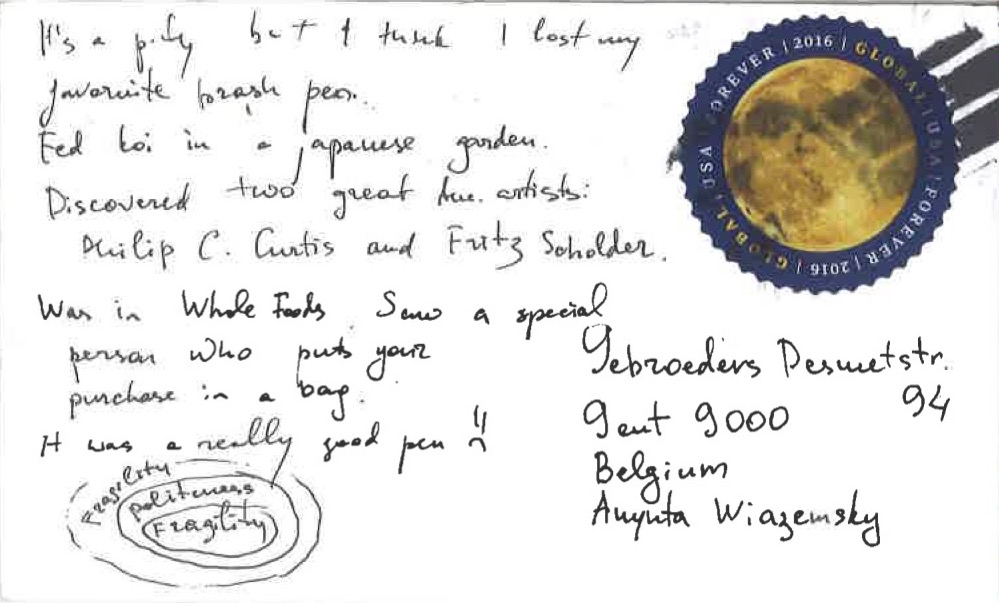 It's a pity but I think I lost my
favorite brush pen.
Fed koi in a Japanese garden.
Discovered two great Am. artists:
Philip C. Curtis and Fritz Scholder.
Was in Whole Foods. Saw a special
person who puts your
purchase in a bag.
It was a really good pen
Fragility
politeness
Fragility
GLOBAL | USA | FOREVER | 2016 | GLOBAL | USA | FOREVER | 2016 |
Gebroeders Desmetstr.
94
Gent 9000
Belgium
Anyuta Wiazemsky